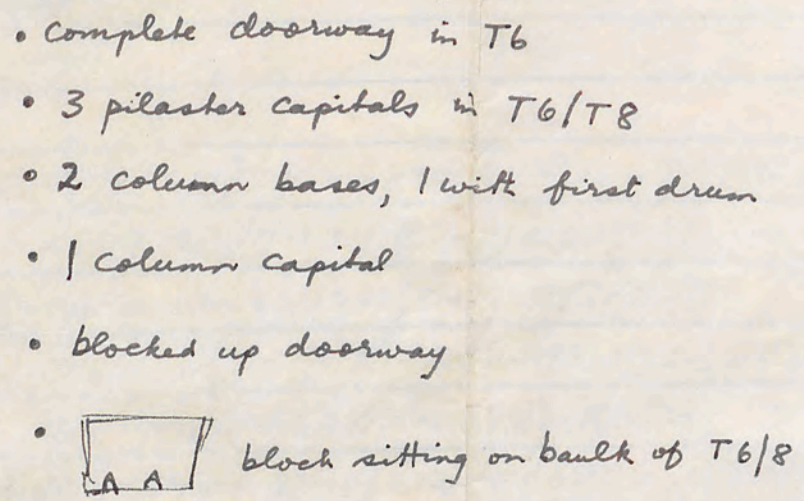 • complete doorway in T6
• 3 pilaster capitals in T6/T8
• 2 column bases, 1 with first drum
• 1 column capital
• blocked up doorway
• block sitting on baulk of T6/8